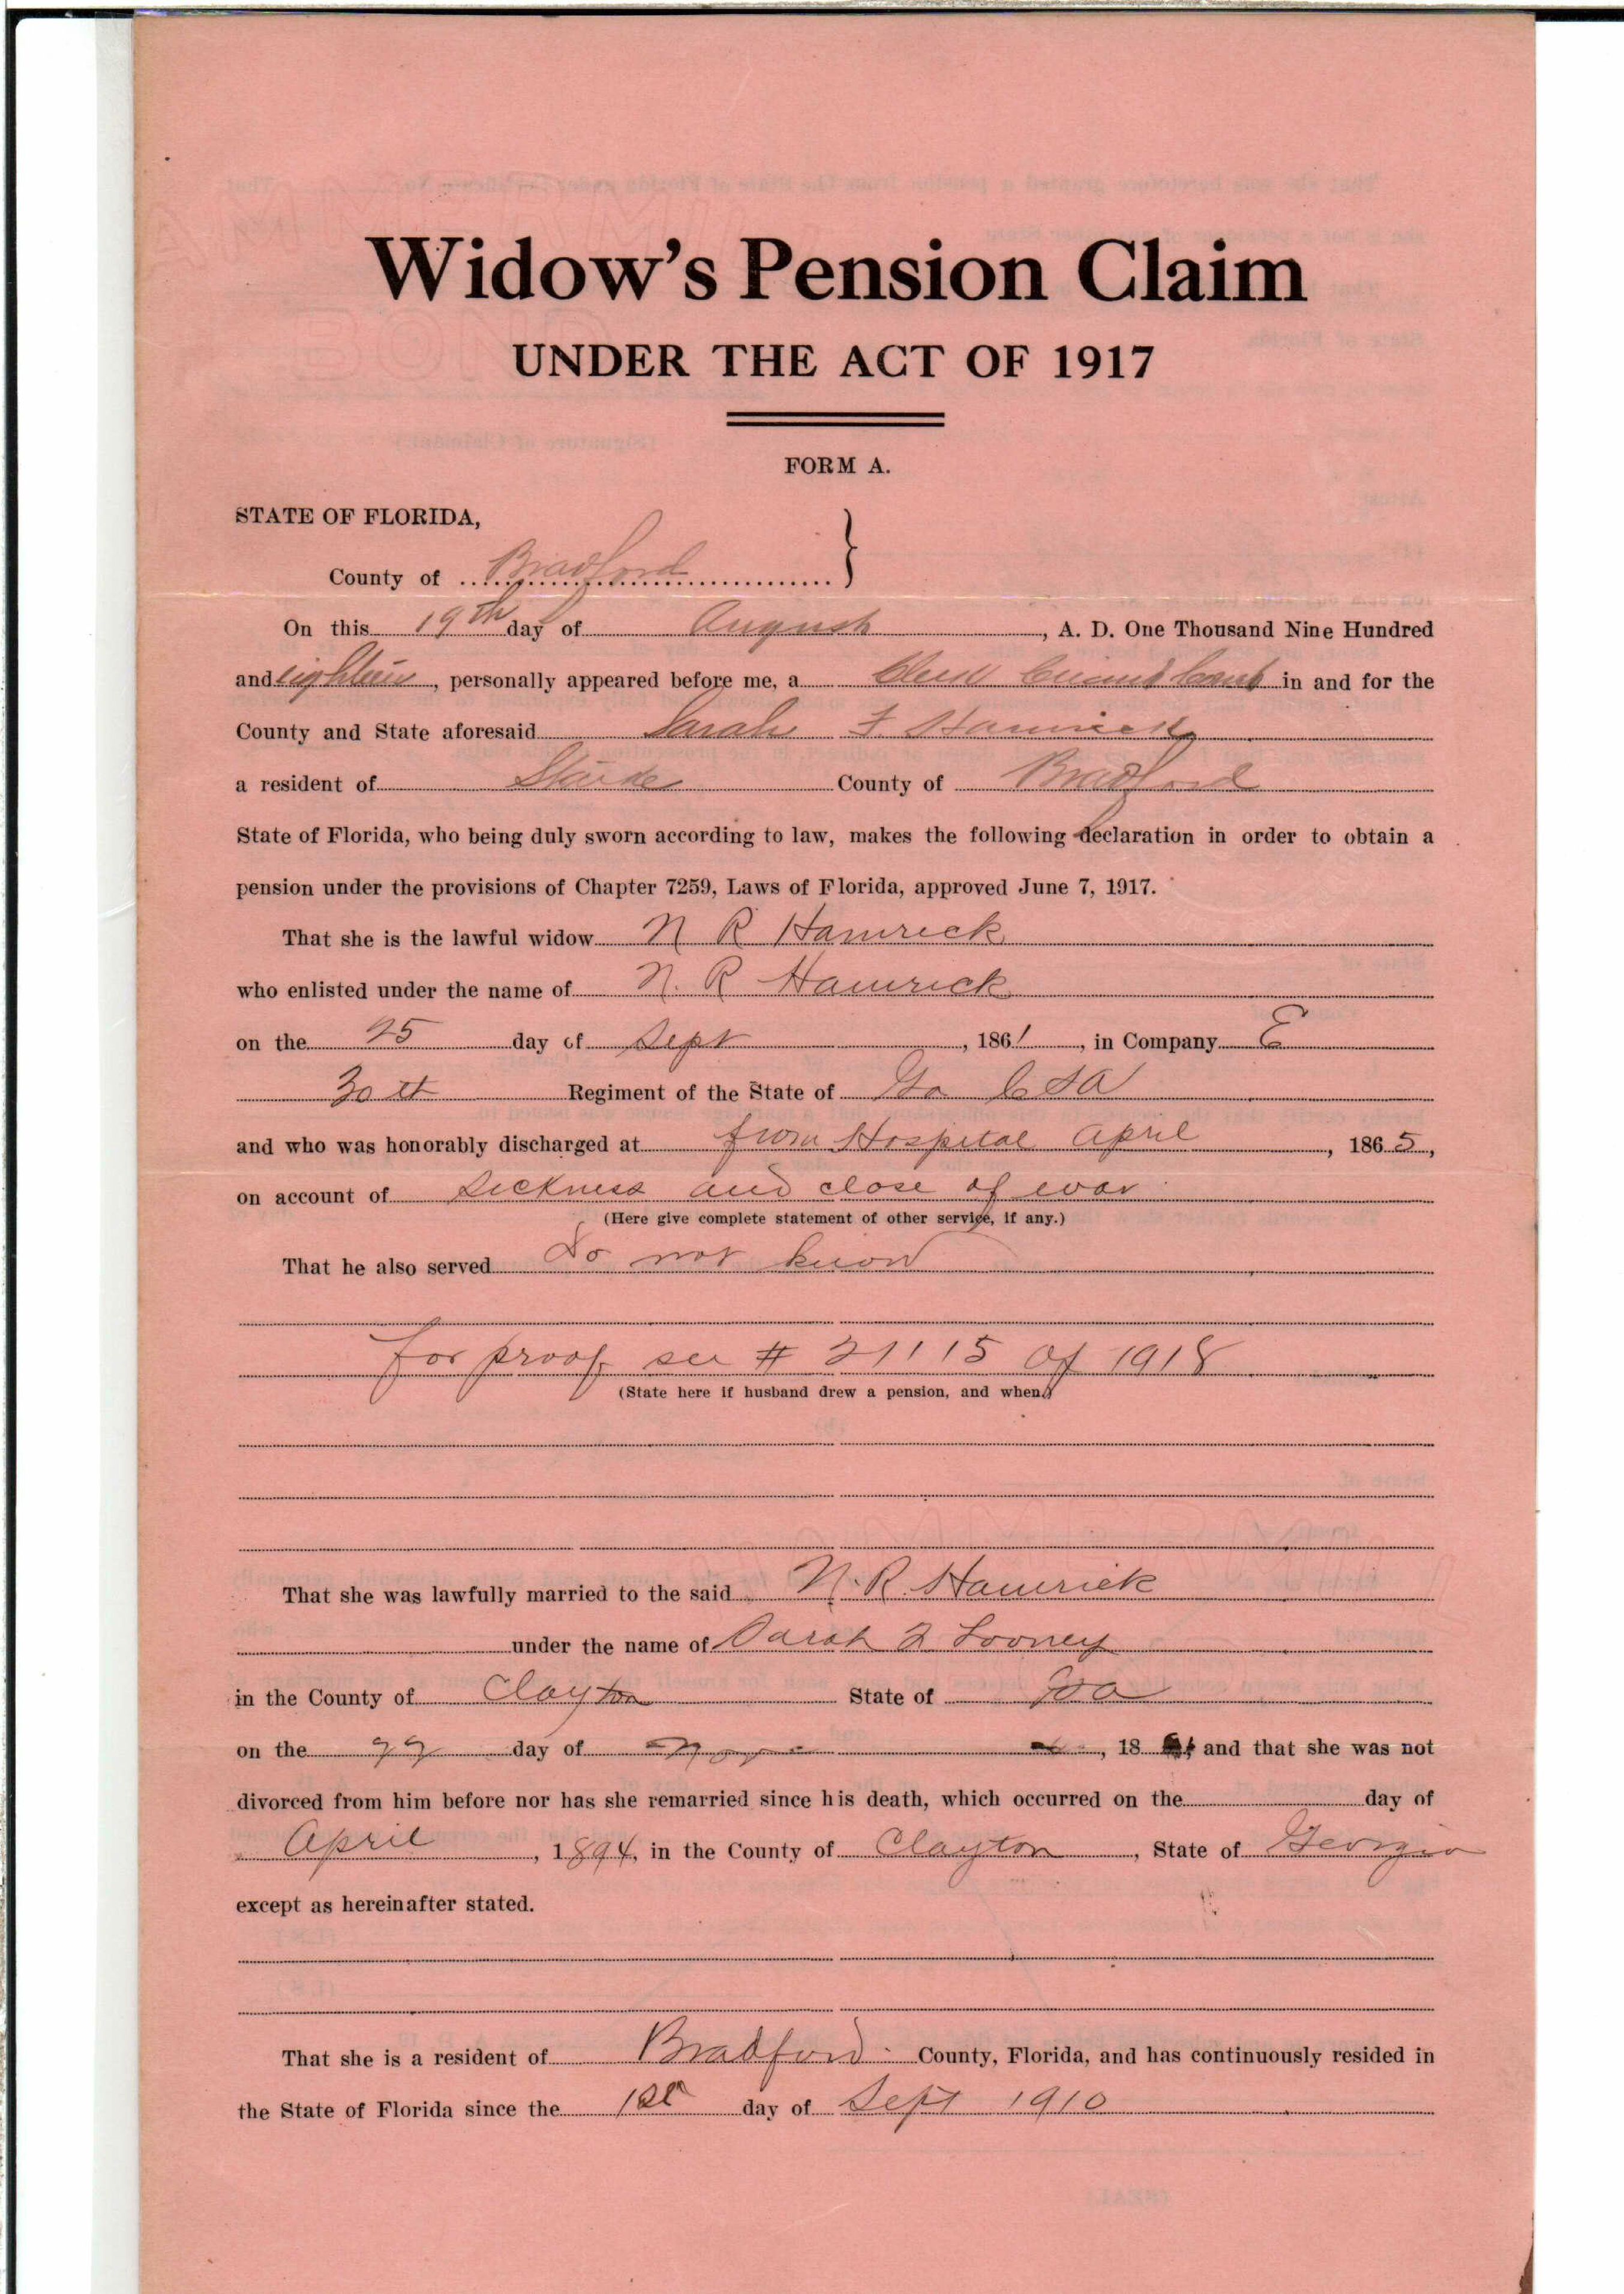 Widow's Pension Claim
UNDER THE ACT OF 1917
FORM A.
STATE OF FLORIDA,
County of Bradford
On this 19th day of August, A. D. One Thousand Nine Hundred
and eighteen, personally appeared before me, a Clerk Circuit Court in and for the
County and State aforesaid Sarah F. Hamrick
a resident of Starke County of Bradford
State of Florida, who being duly sworn according to law, makes the following declaration in order to obtain a
pension under the provisions of Chapter 7259, Laws of Florida, approved June 7, 1917.
That she is the lawful widow N R Hamrick
who enlisted under the name of N. R Hamrick
on the 25 day of Sept, 1861, in Company E
30th Regiment of the State of Ga C S A
and who was honorably discharged at from Hospital April, 1865,
on account of Sickness and close of war
(Here give complete statement of other service, if any.)
That he also served Do not know
for proof see # 21115 of 1918
(State here if husband drew a pension, and when.)
That she was lawfully married to the said N. R. Hamrick
under the name of Sarah F Looney
in the County of Clayton State of Ga
on the day of, 18 and that she was not
divorced from him before nor has she remarried since his death, which occurred on the day of
April, 1894, in the County of Clayton, State of Georgia
except as hereinafter stated.
That she is a resident of Bradford County, Florida, and has continuously resided in
the State of Florida since the 1st day of Sept 1910